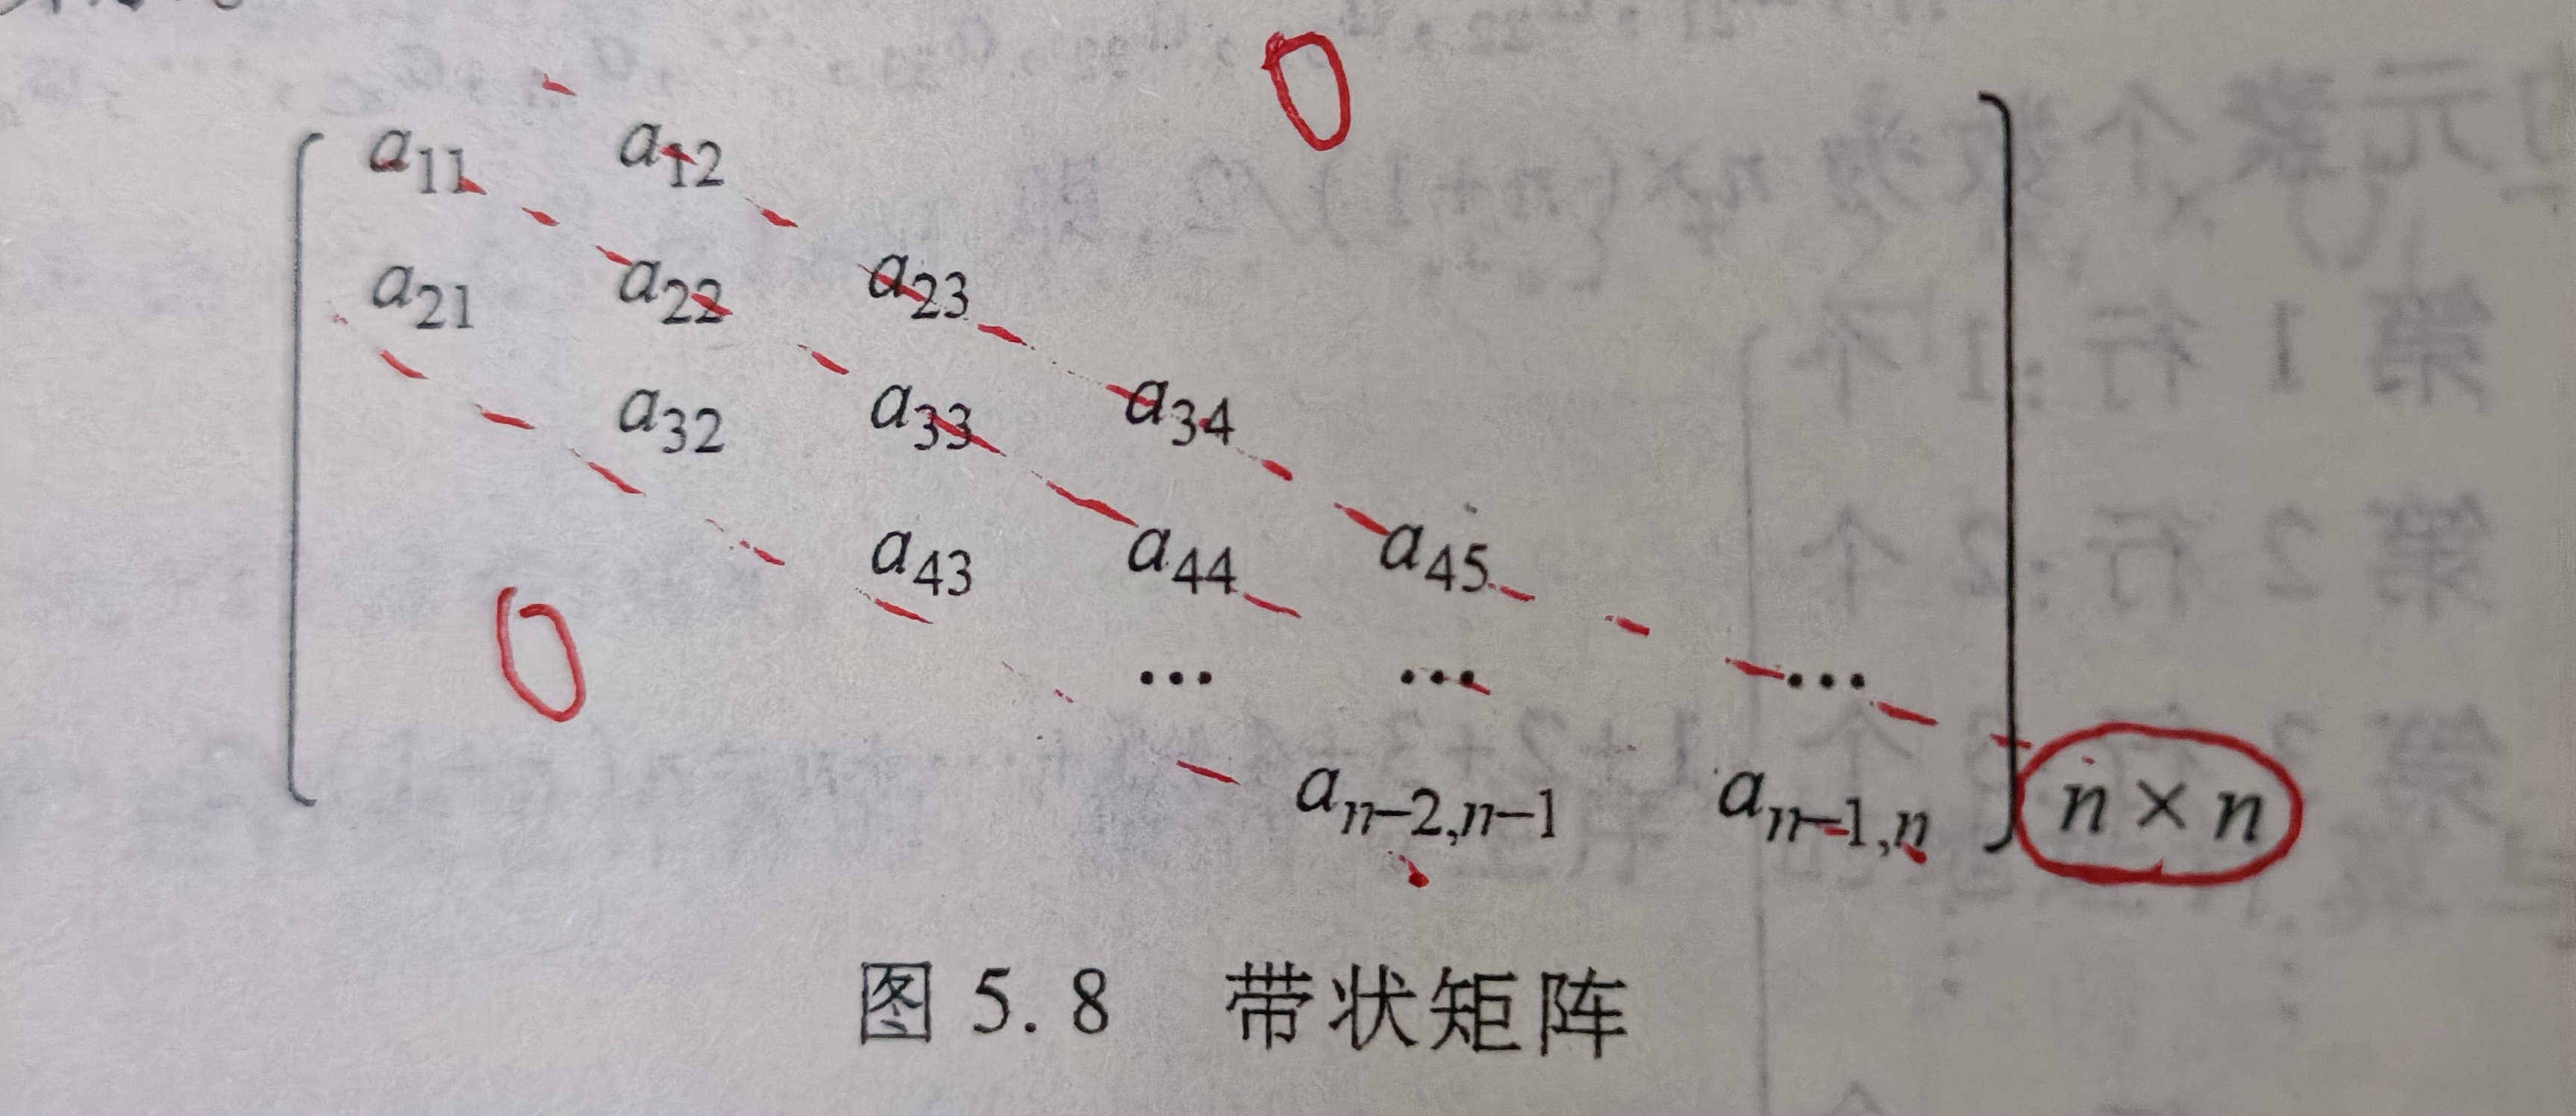 0
a11 a12
a21 a22 a23
a32 a33 a34
a43 a44 a45
0
… … …
an−2,n−1 an−1,n
n×n
图 5.8 带状矩阵